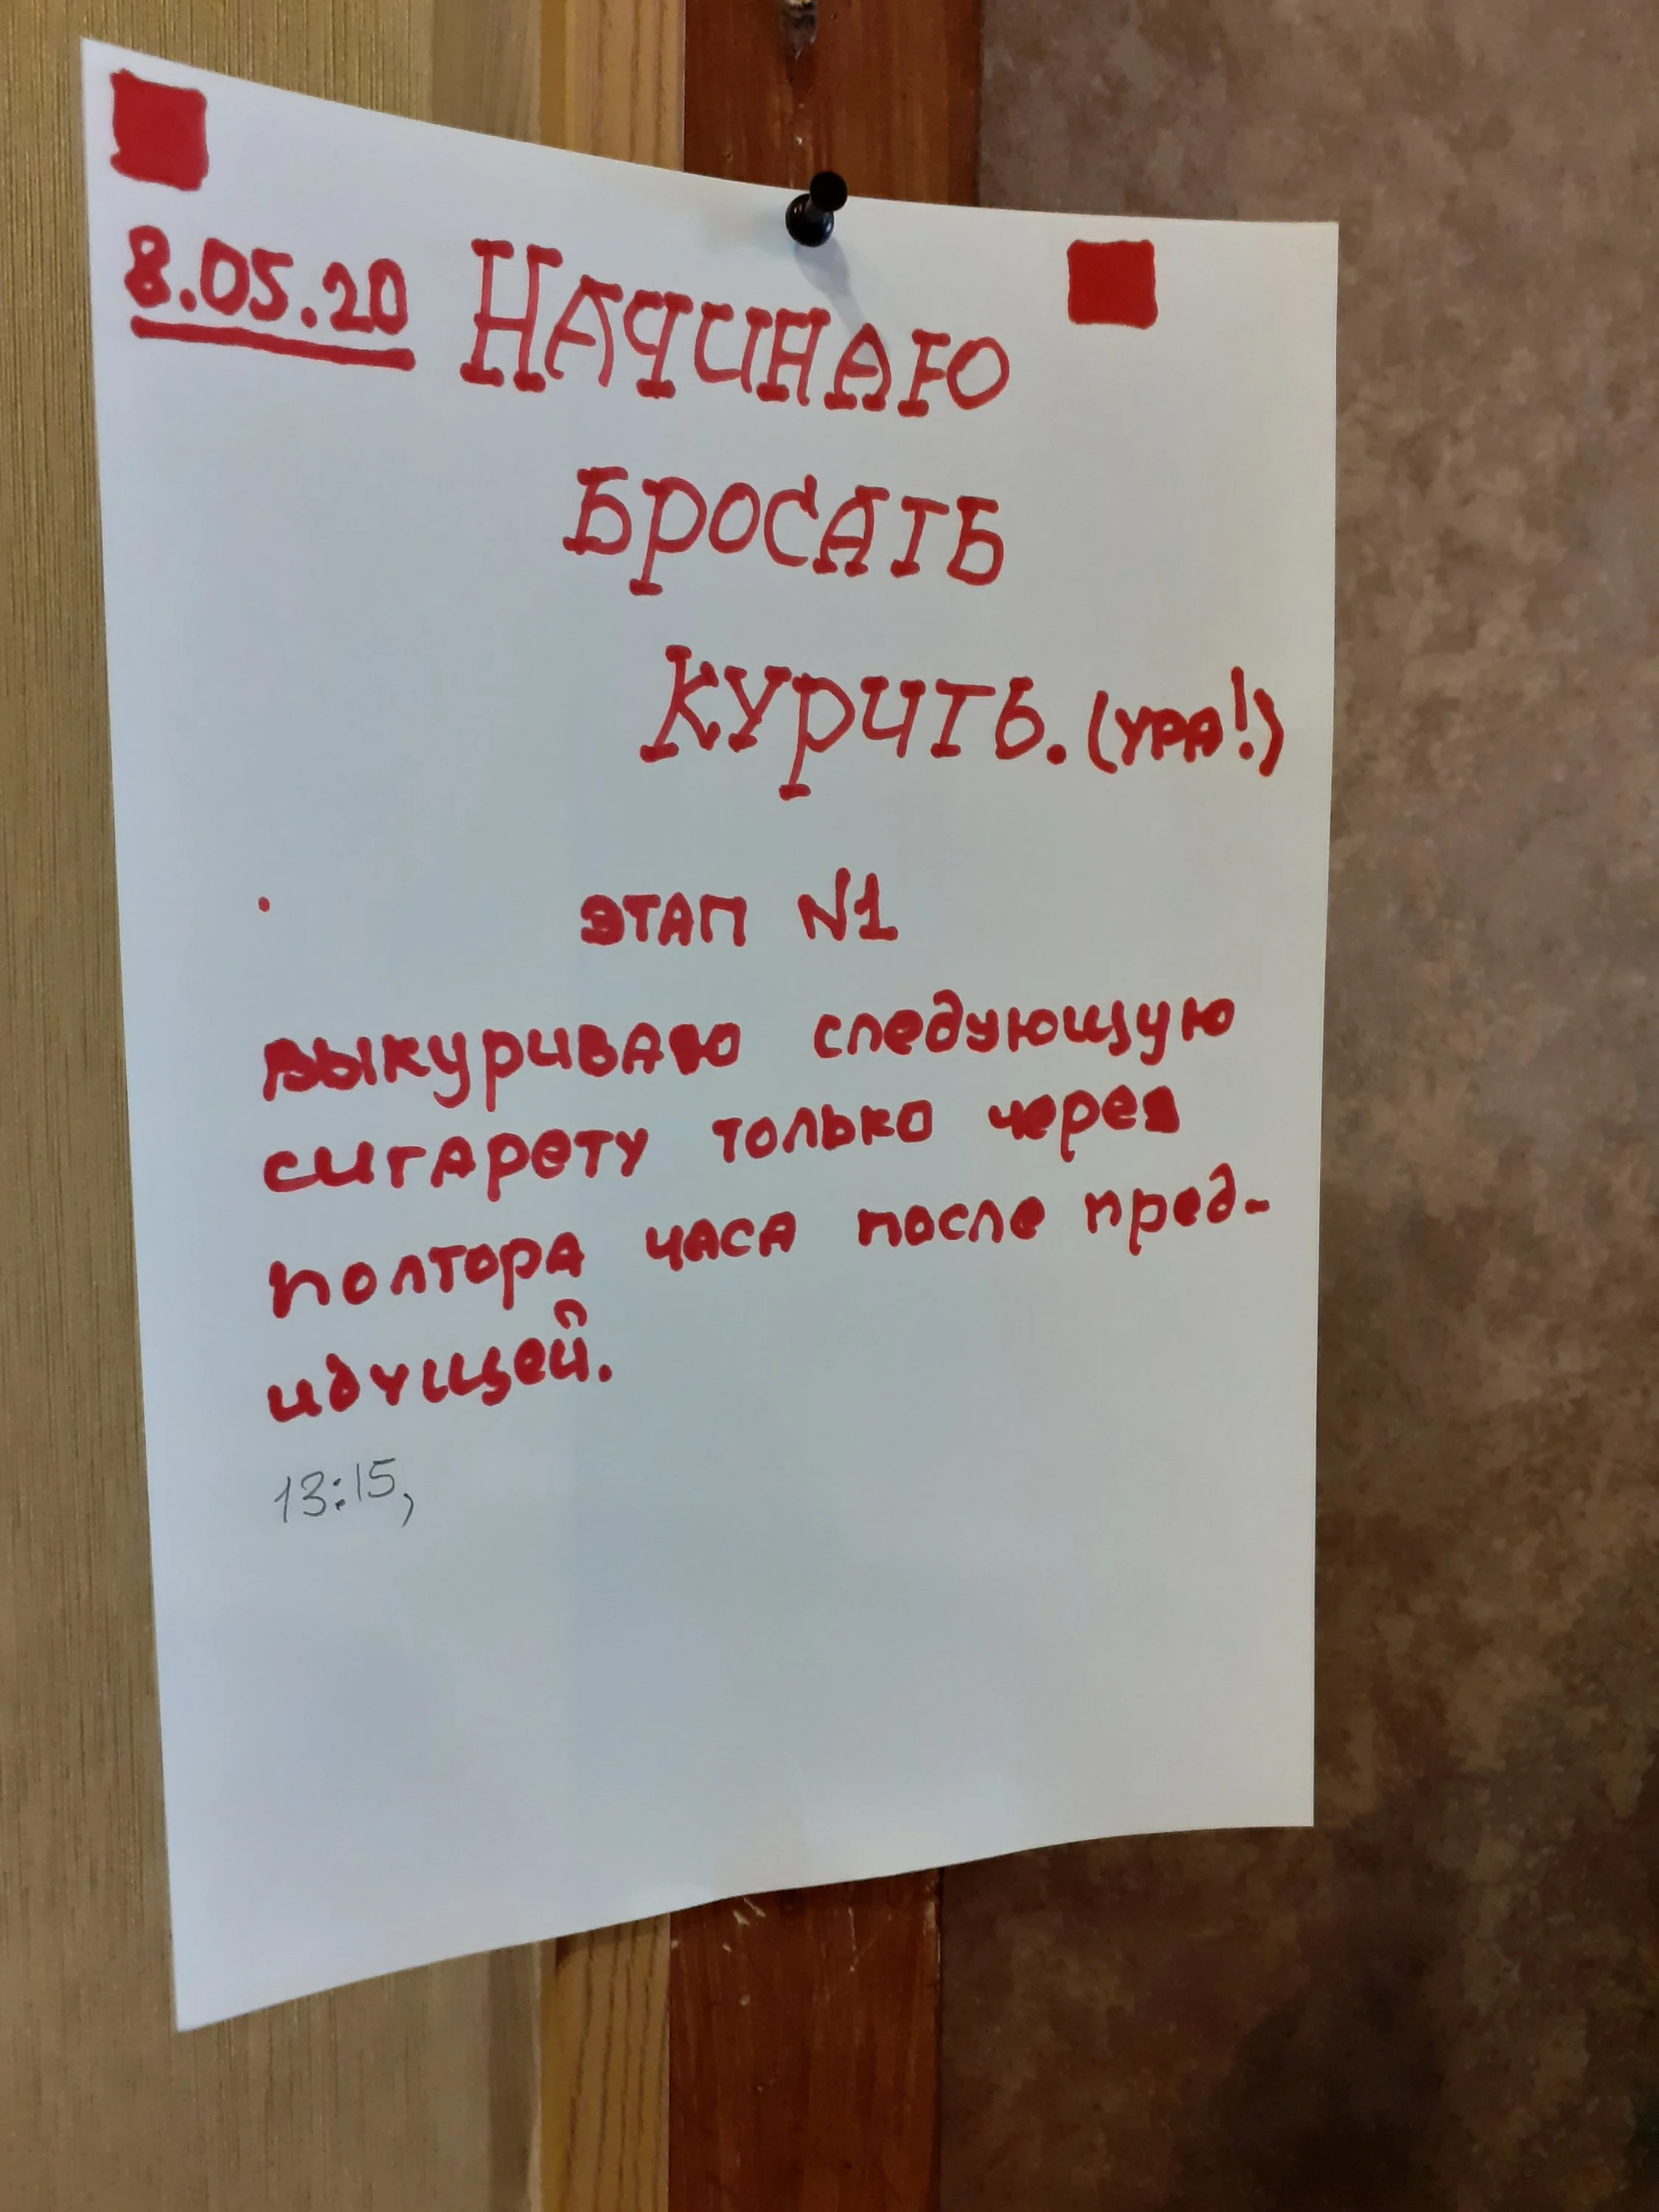 8.05.20 НАЧИНАЮ
БРОСАТЬ
КУРИТЬ. (УРА!)
ЭТАП №1
выкуриваю следующую
сигарету только через
полтора часа после пред-
идущей.
13:15,